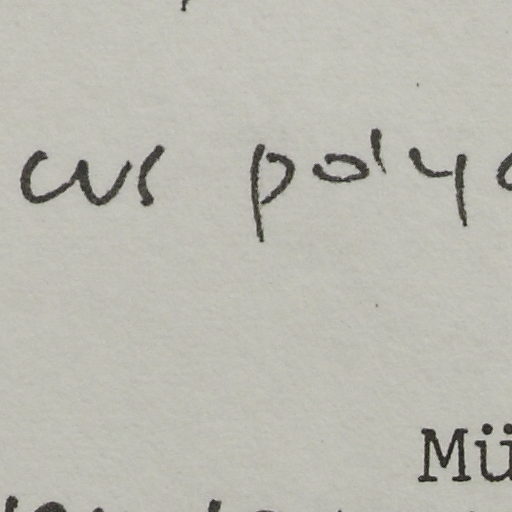 cus polyc
Mü